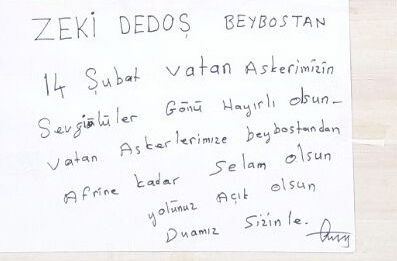 ZEKİ DEDOŞ BEYBOSTAN
14 Şubat vatan Askerimizin
Sevgililer Gönü Hayırlı olsun-
vatan Askerlerimize beybostandan
Afrine kadar Selam olsun
yolunuz Açık olsun
Duamız Sizinle.